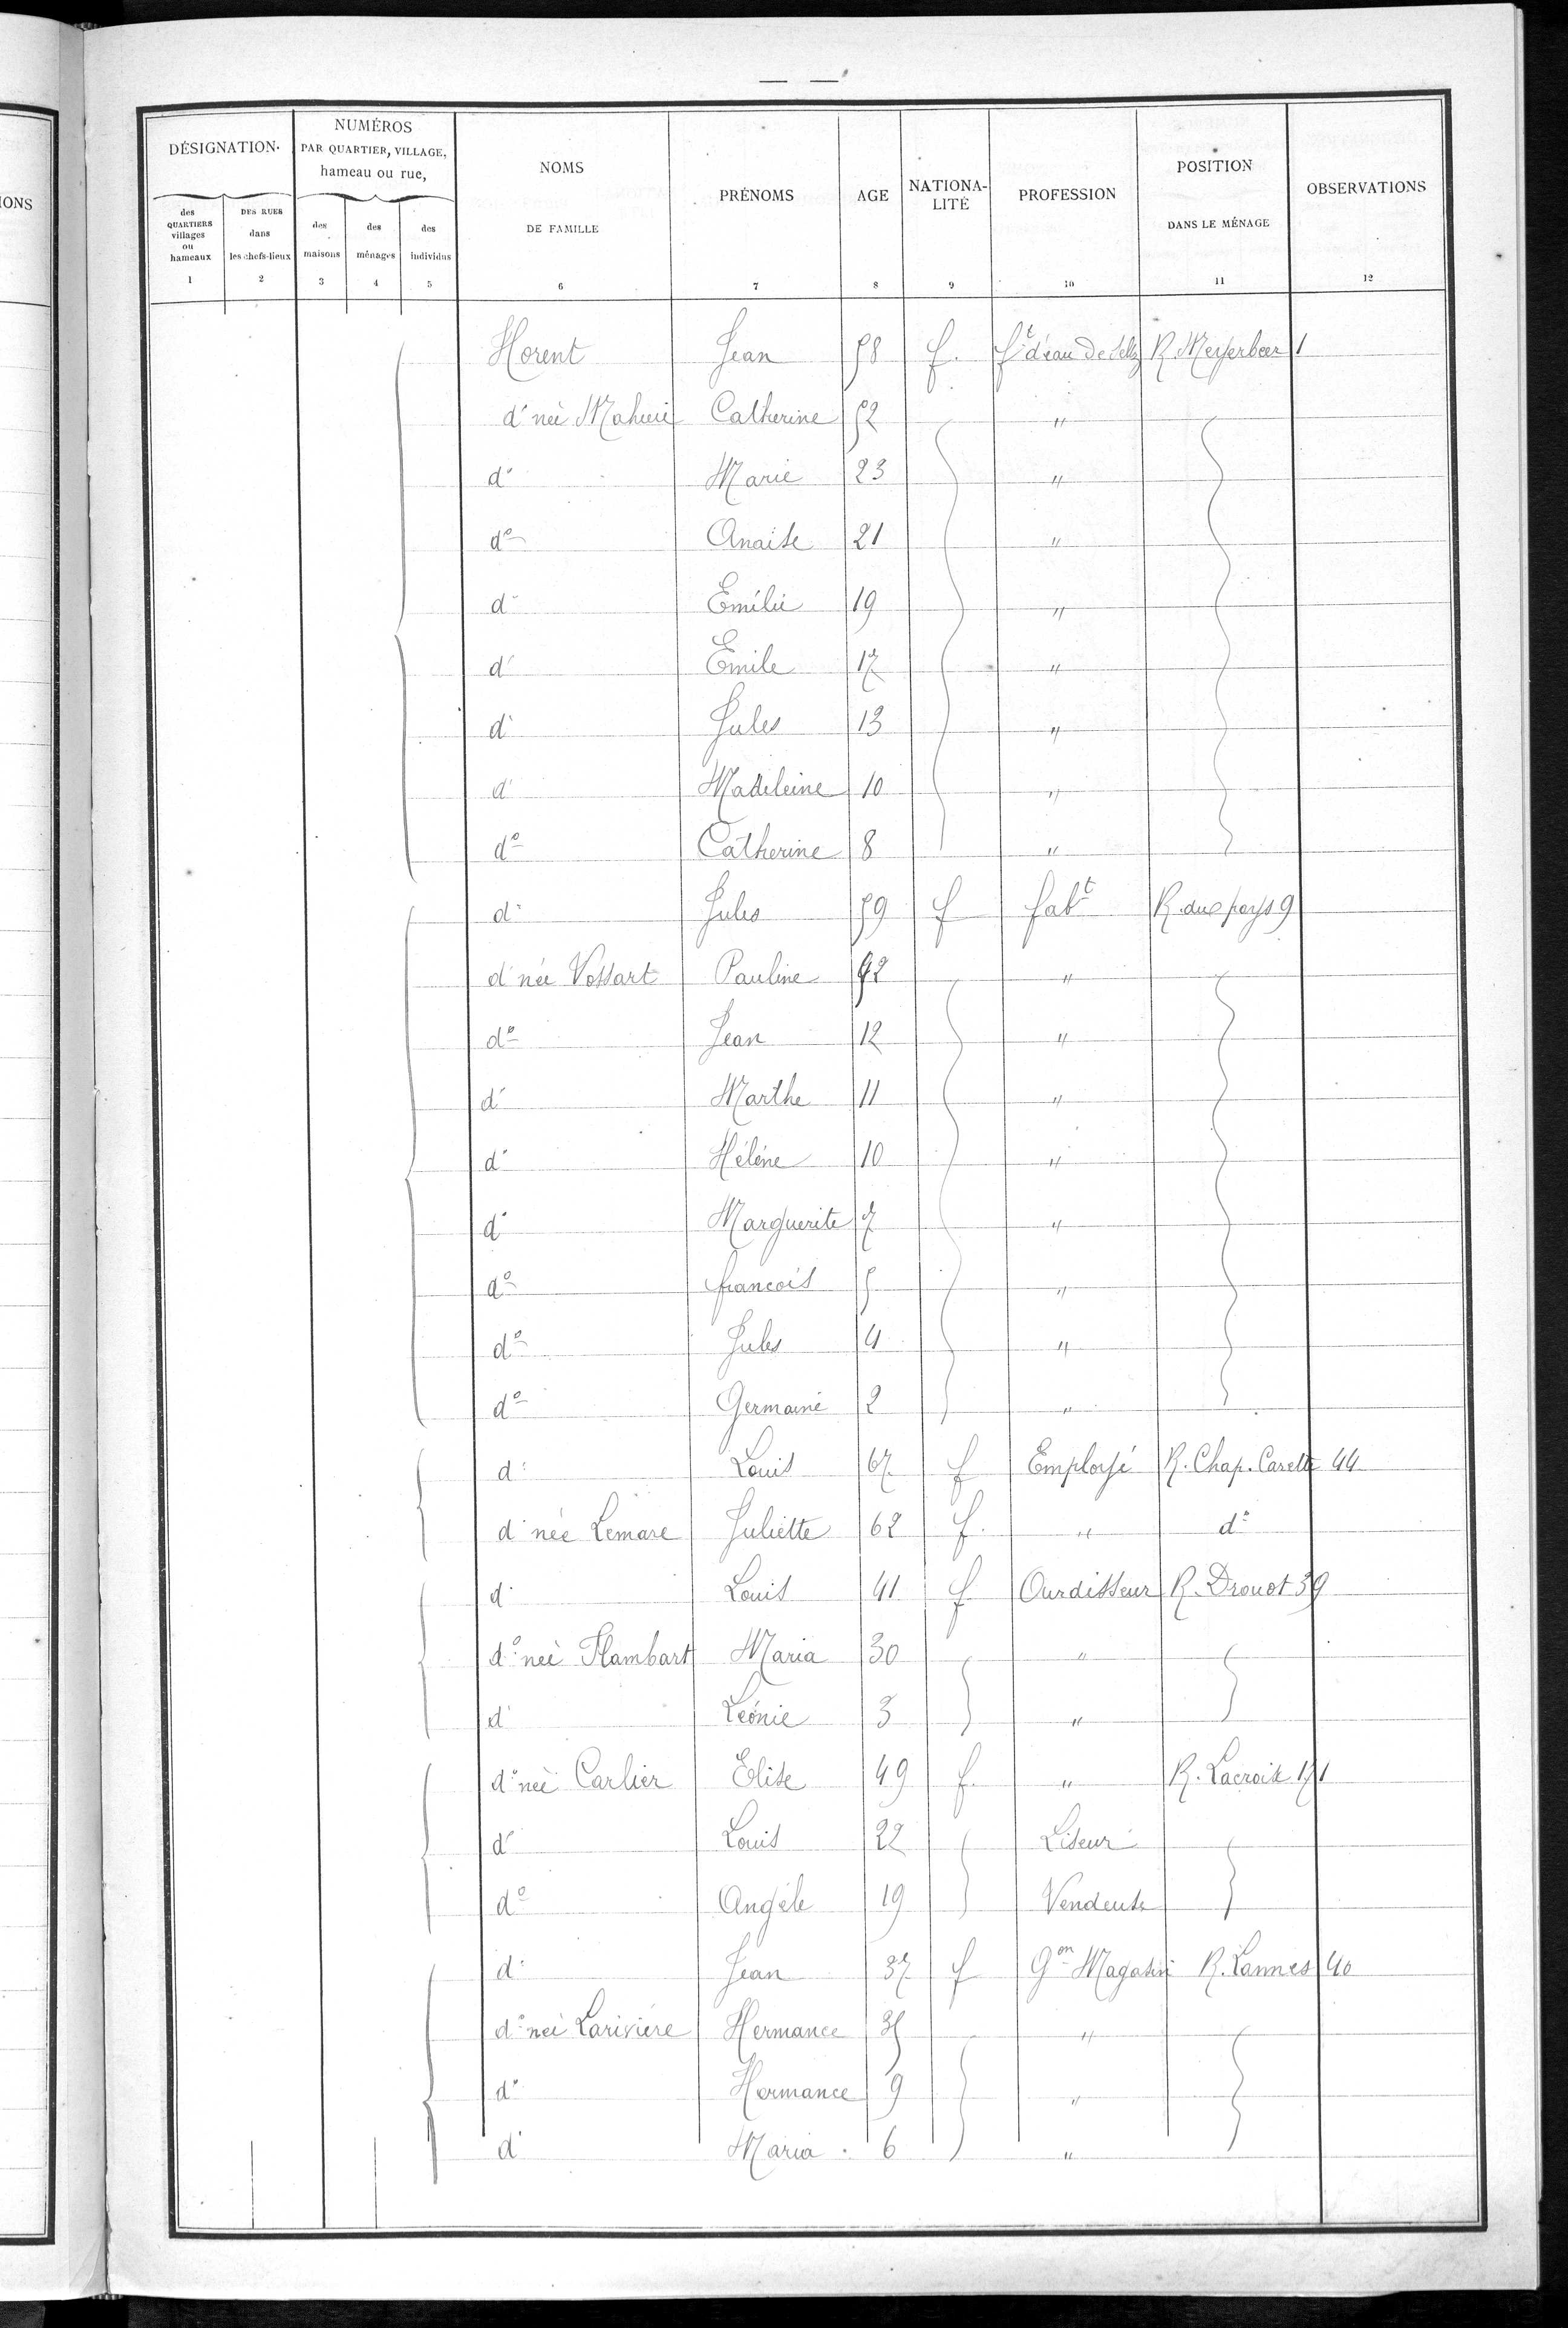 — —
IONS
DÉSIGNATION.
NUMÉROS PAR QUARTIER, VILLAGE, hameau ou rue,
NOMS DE FAMILLE
PRÉNOMS
AGE
NATIONA-LITÉ
PROFESSION
POSITION DANS LE MÉNAGE
OBSERVATIONS
des QUARTIERS villages ou hameaux
DES RUES dans les chefs-lieux
des maisons
des ménages
des individus
1 2 3 4 5 6 7 8 9 10 11 12
Horent Jean 58 f. ft d'eau de Selz R. Meyerbeer 1
do née Catherine 52 "
do Marie 23 "
do Anaïse 21 "
do Emilie 19 "
do Emile 17 "
do Jules 13 "
do Madeleine 10 "
do Catherine 8 "
do Jules 59 f fabt R. du pays 9
do née Vossart Pauline 42 "
do Jean 12 "
do Marthe 11 "
do Hélène 10 "
do Marguerite 7 "
do francois 5 "
do Jules 4 "
do Germaine 2 "
do Louis 67 f Employé R. Chap. Carette 44
do née Lemare Juliette 62 f. " do
do Louis 41 f Ourdisseur R. Drouot 39
do née Flambart Maria 30 "
do Léonie 3 "
do née Carlier Elise 49 f. " R. Lacroix 171
do Louis 22 Liseur
do Angèle 19 Vendeuse
do Jean 37 f Gon Magasin R. Lannes 40
do née Larivière Hermance 35 "
do Hermance 9 "
do Maria 6 "